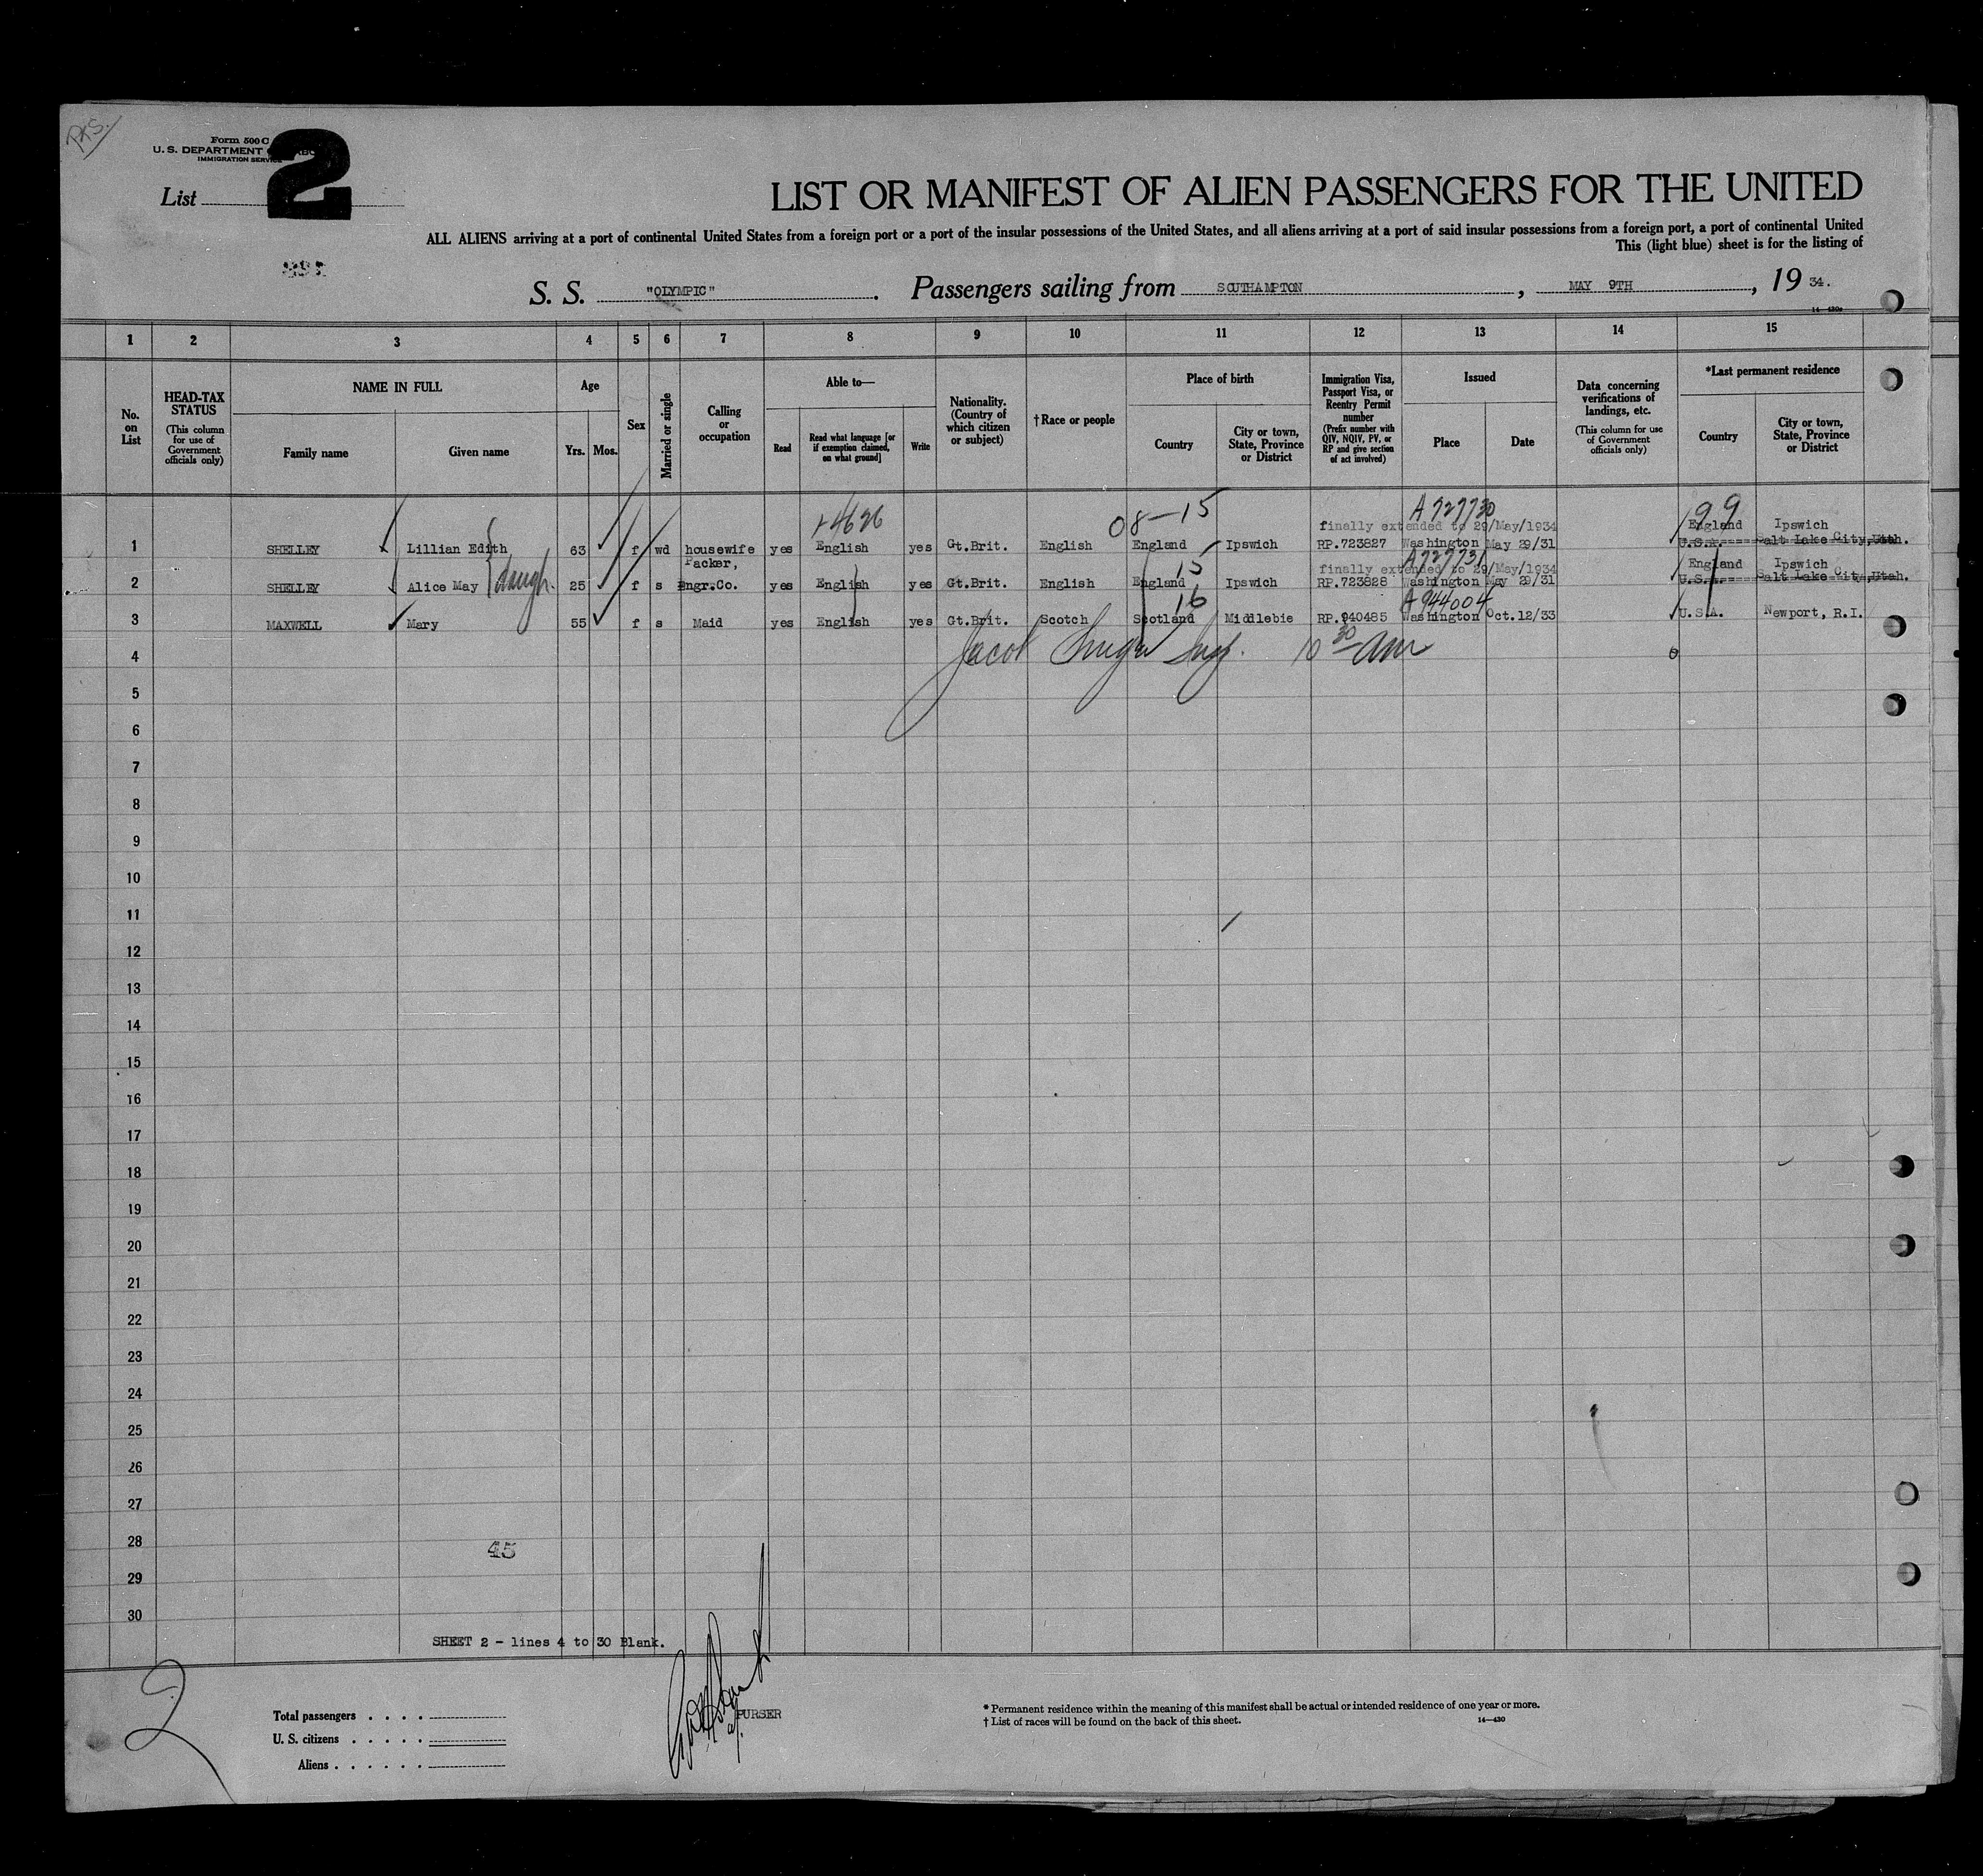 RKS.
Form 500 C
U. S. DEPARTMENT
IMMIGRATION SERVICE
2
List
LIST OR MANIFEST OF ALIEN PASSENGERS FOR THE UNITED
ALL ALIENS arriving at a port of continental United States from a foreign port or a port of the insular possessions of the United States, and all aliens arriving at a port of said insular possessions from a foreign port, a port of continental United
This (light blue) sheet is for the listing of
S. S. "OLYMPIC". Passengers sailing from SOUTHAMPTON, MAY 9TH, 19 34.
1 2 3 4 5 6 7 8 9 10 11 12 13 14 15
No. on List
HEAD-TAX STATUS (This column for use of Government officials only)
NAME IN FULL
Family name
Given name
Age
Yrs. Mos.
Sex
Married or single
Calling or occupation
Able to—
Read
Read what language [or if exemption claimed, on what ground]
Write
Nationality. (Country of which citizen or subject)
† Race or people
Place of birth
Country
City or town, State, Province or District
Immigration Visa, Passport Visa, or Reentry Permit number (Prefix number with QIV, NQIV, PV, or RP and give section of act involved)
Issued
Place
Date
Data concerning verifications of landings, etc. (This column for use of Government officials only)
*Last permanent residence
Country
City or town, State, Province or District
4626 08-15 A727730 99
finally extended to 29/May/1934 England Ipswich
1 SHELLEY Lillian Edith 63 f wd housewife yes English yes Gt.Brit. English England Ipswich RP.723827 Washington May 29/31 U.S.A. Salt Lake City, Utah.
Packer, 15 A727731
finally extended to 29/May/1934 England Ipswich
2 SHELLEY Alice May daugh. 25 f s Engr.Co. yes English yes Gt.Brit. English England Ipswich RP.723828 Washington May 29/31 U.S.A. Salt Lake City, Utah.
16 A944004
3 MAXWELL Mary 55 f s Maid yes English yes Gt.Brit. Scotch Scotland Middlebie RP.940485 Washington Oct.12/33 U.S.A. Newport, R.I.
4 Jacob 10 30 am
5
6
7
8
9
10
11
12
13
14
15
16
17
18
19
20
21
22
23
24
25
26
27
28
45
29
30
SHEET 2 - lines 4 to 30 Blank.
2
PURSER
Total passengers
U. S. citizens
Aliens
* Permanent residence within the meaning of this manifest shall be actual or intended residence of one year or more.
† List of races will be found on the back of this sheet.
14—430